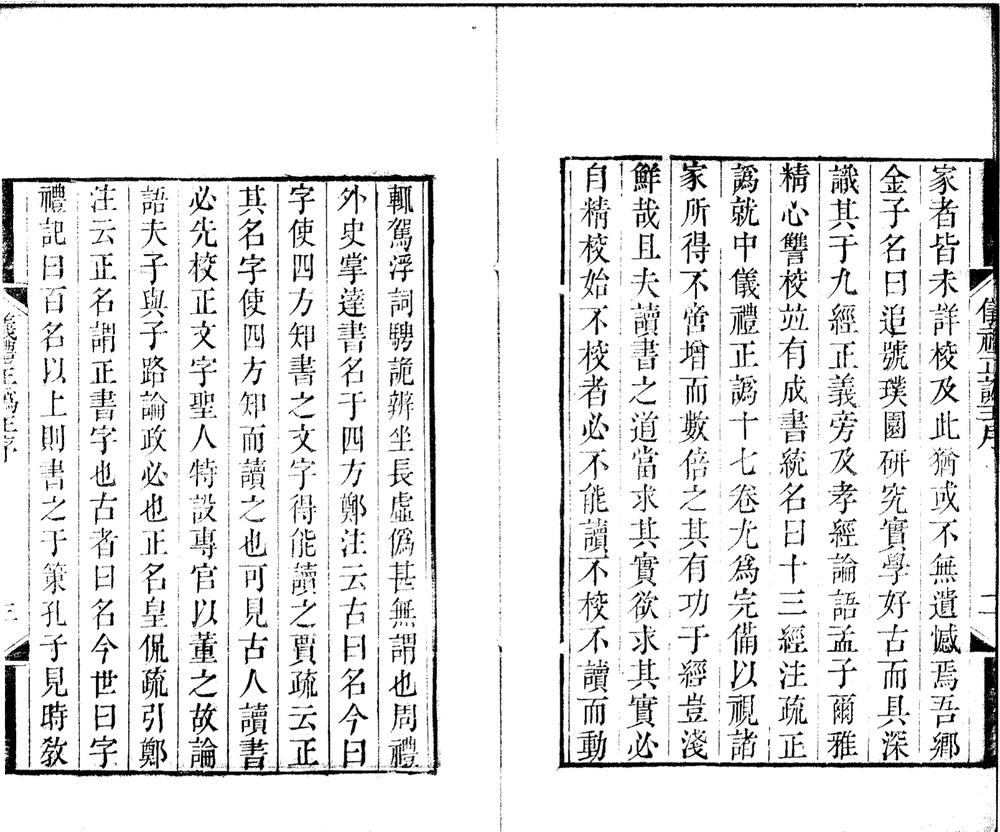 家者皆未詳校及此猶或不無遺憾焉吾鄉
金子名曰追號璞園硏究實學好古而具深
識其于九經正義旁及孝經論語孟子爾雅
精心讐校竝有成書統名曰十三經注疏正
譌就中儀禮正譌十七卷尤爲完備以視諸
家所得不啻增而數倍之其有功于經豈淺
鮮哉且夫讀書之道當求其實欲求其實必
自精校始不校者必不能讀不校不讀而動
儀禮正譌王序
二
輒駕浮詞騁詭辨坐長虛僞甚無謂也周禮
外史掌達書名于四方鄭注云古曰名今曰
字使四方知書之文字得能讀之賈疏云正
其名字使四方知而讀之也可見古人讀書
必先校正文字聖人特設專官以董之故論
語夫子與子路論政必也正名皇侃疏引鄭
注云正名謂正書字也古者曰名今世曰字
禮記曰百名以上則書之于策孔子見時敎
儀禮正譌王序
三